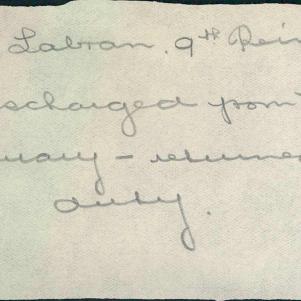 Labran. 9th Rei
scharged from
uary - returne
duty.